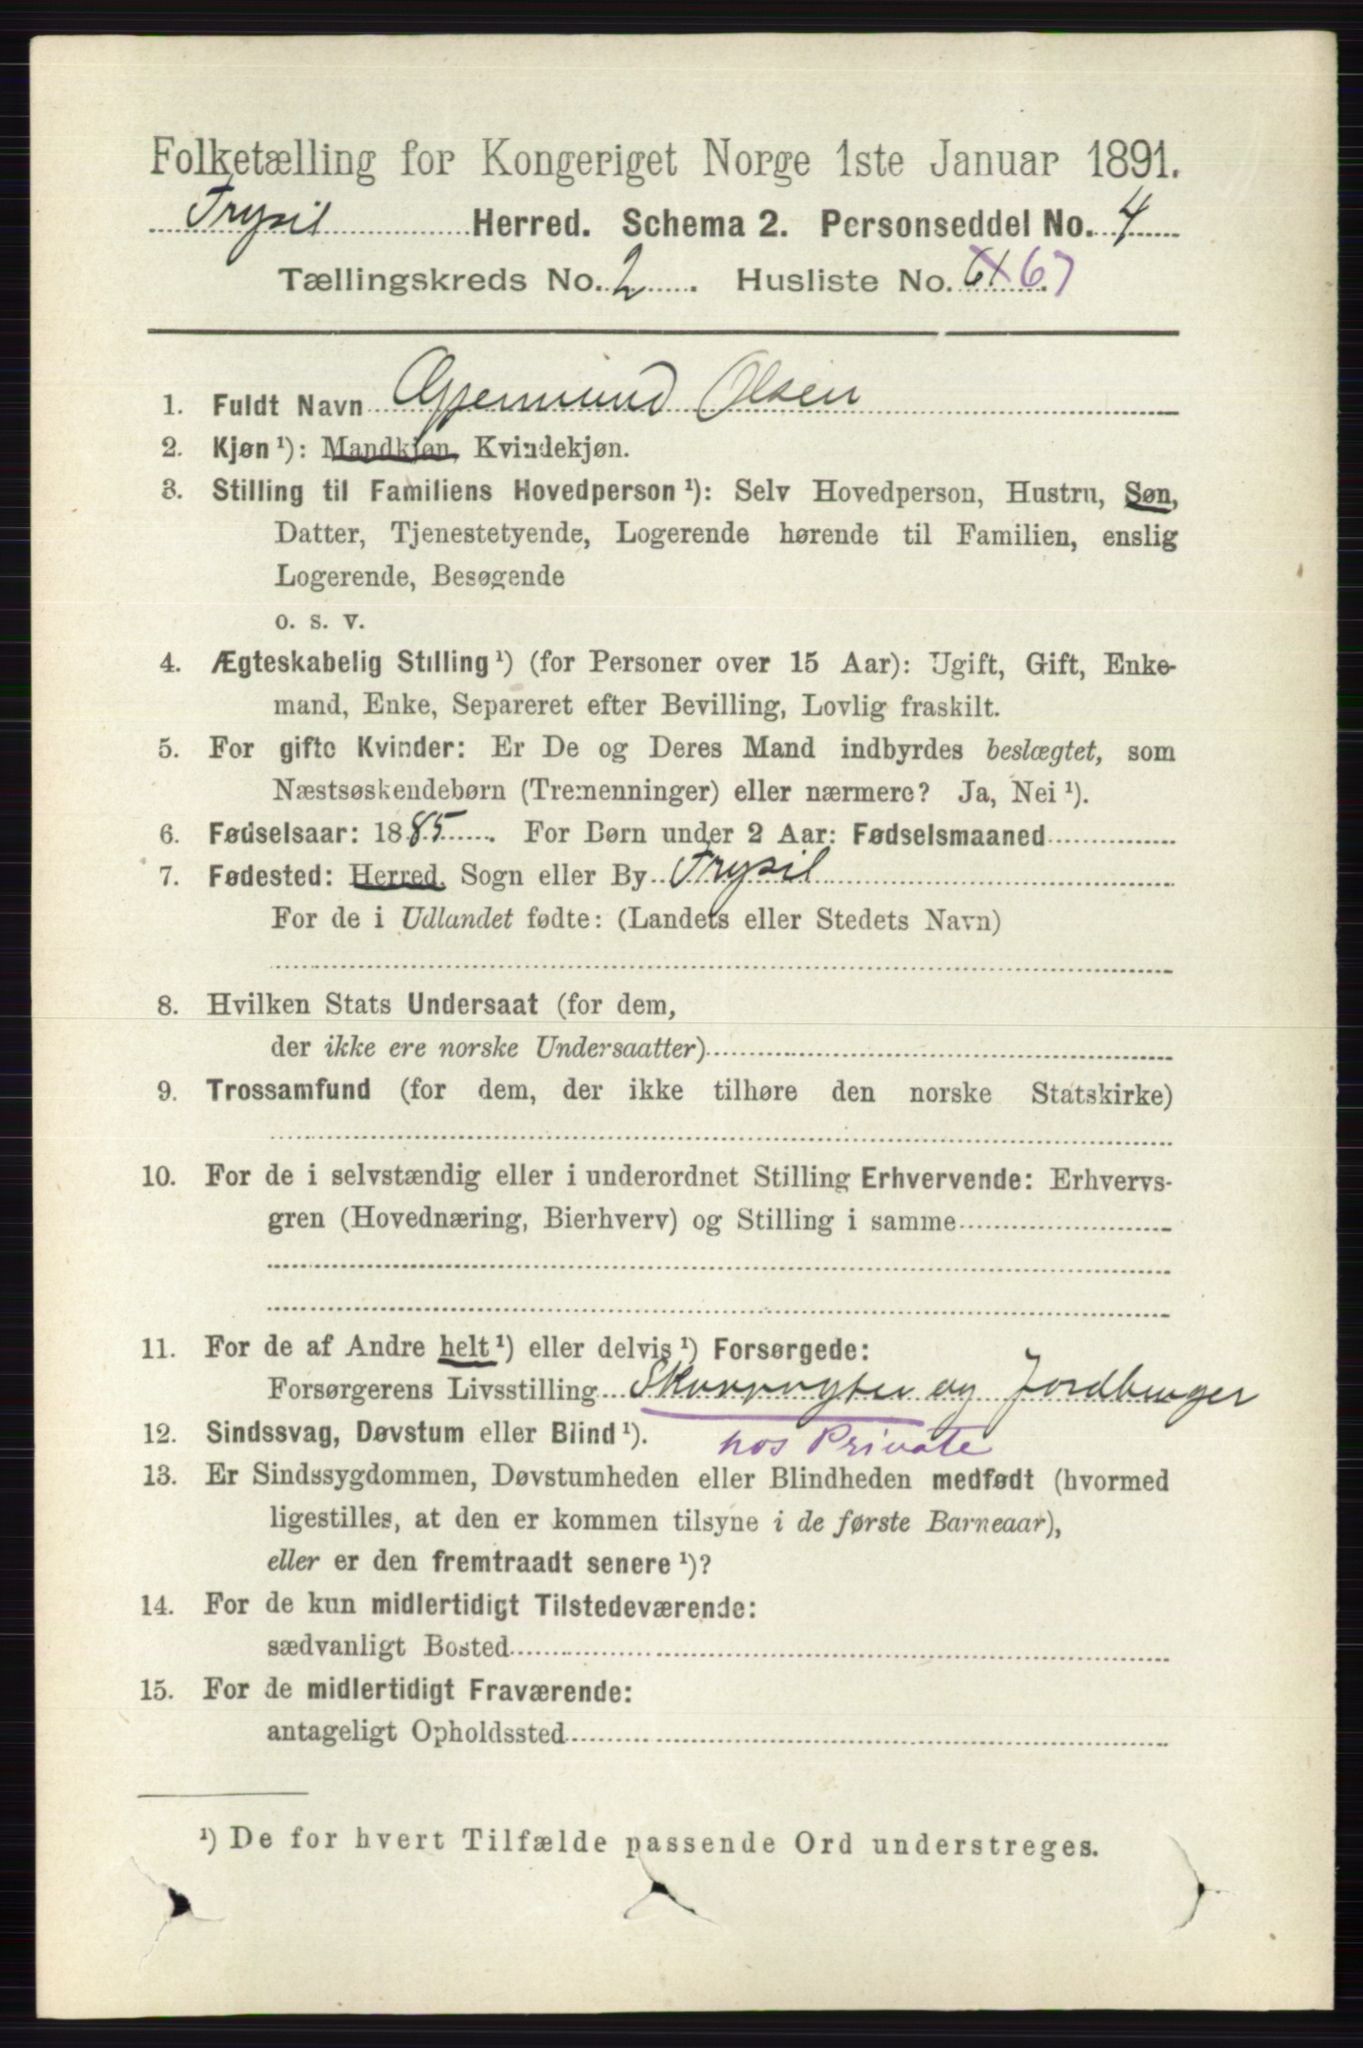 Folketælling for Kongeriget Norge 1ste Januar 1891.
Trysil Herred. Schema 2. Personseddel No. 4
Tællingskreds No. 2. Husliste No. 67
1. Fuldt Navn Gjermund Olsen
2. Kjøn¹): Mandkjøn, Kvindekjøn.
3. Stilling til Familiens Hovedperson¹): Selv Hovedperson, Hustru, Søn,
Datter, Tjenestetyende, Logerende hørende til Familien, enslig
Logerende, Besøgende
o. s. v.
4. Ægteskabelig Stilling¹) (for Personer over 15 Aar): Ugift, Gift, Enke-
mand, Enke, Separeret efter Bevilling, Lovlig fraskilt.
5. For gifte Kvinder: Er De og Deres Mand indbyrdes beslægtet, som
Næstsøskendebørn (Tremenninger) eller nærmere? Ja, Nei¹).
6. Fødselsaar: 1885. For Børn under 2 Aar: Fødselsmaaned
7. Fødested: Herred, Sogn eller By Trysil
For de i Udlandet fødte: (Landets eller Stedets Navn)
8. Hvilken Stats Undersaat (for dem,
der ikke ere norske Undersaatter)
9. Trossamfund (for dem, der ikke tilhøre den norske Statskirke)
10. For de i selvstændig eller i underordnet Stilling Erhvervende: Erhvervs-
gren (Hovednæring, Bierhverv) og Stilling i samme
11. For de af Andre helt¹) eller delvis¹) Forsørgede:
Forsørgerens Livsstilling og Jordbruger
12. Sindssvag, Døvstum eller Blind¹). hos Private
13. Er Sindssygdommen, Døvstumheden eller Blindheden medfødt (hvormed
ligestilles, at den er kommen tilsyne i de første Barneaar),
eller er den fremtraadt senere¹)?
14. For de kun midlertidigt Tilstedeværende:
sædvanligt Bosted
15. For de midlertidigt Fraværende:
antageligt Opholdssted
¹) De for hvert Tilfælde passende Ord understreges.